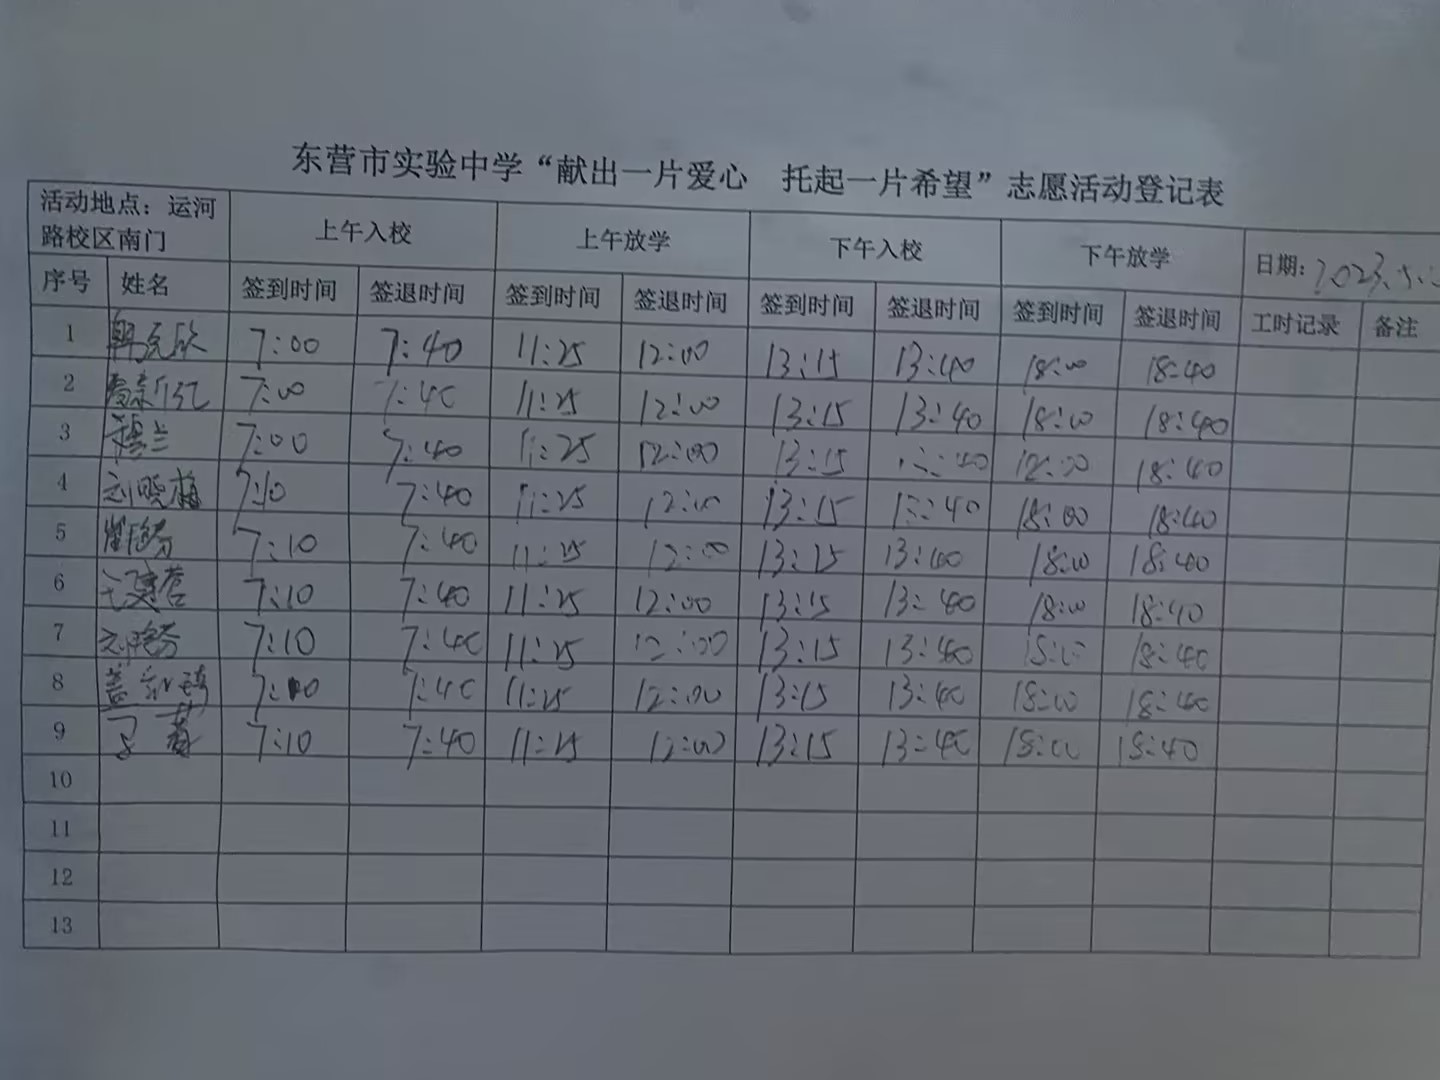 东营市实验中学“献出一片爱心 托起一片希望”志愿活动登记表
活动地点：运河路校区南门 上午入校 上午放学 下午入校 下午放学 日期：2023.5.
序号 姓名 签到时间 签退时间 签到时间 签退时间 签到时间 签退时间 签到时间 签退时间 工时记录 备注
1 7:00 7:40 11:25 12:00 13:15 13:40 18:00 18:40
2 7:00 7:40 11:25 12:00 13:15 13:40 18:00 18:40
3 7:00 7:40 11:25 12:00 13:15 13:40 18:40
4 刘晓梅 7:10 7:40 11:25 12:00 13:15 13:40 18:00 18:40
5 7:10 7:40 11:25 12:00 13:15 13:40 18:00 18:40
6 7:10 7:40 11:25 12:00 13:15 13:40 18:00 18:40
7 7:10 7:40 11:25 12:00 13:15 13:40 18:00 18:40
8 7:40 11:25 12:00 13:15 13:40 18:00 18:40
9 7:10 7:40 11:25 12:00 13:15 13:40 18:00 18:40
10
11
12
13